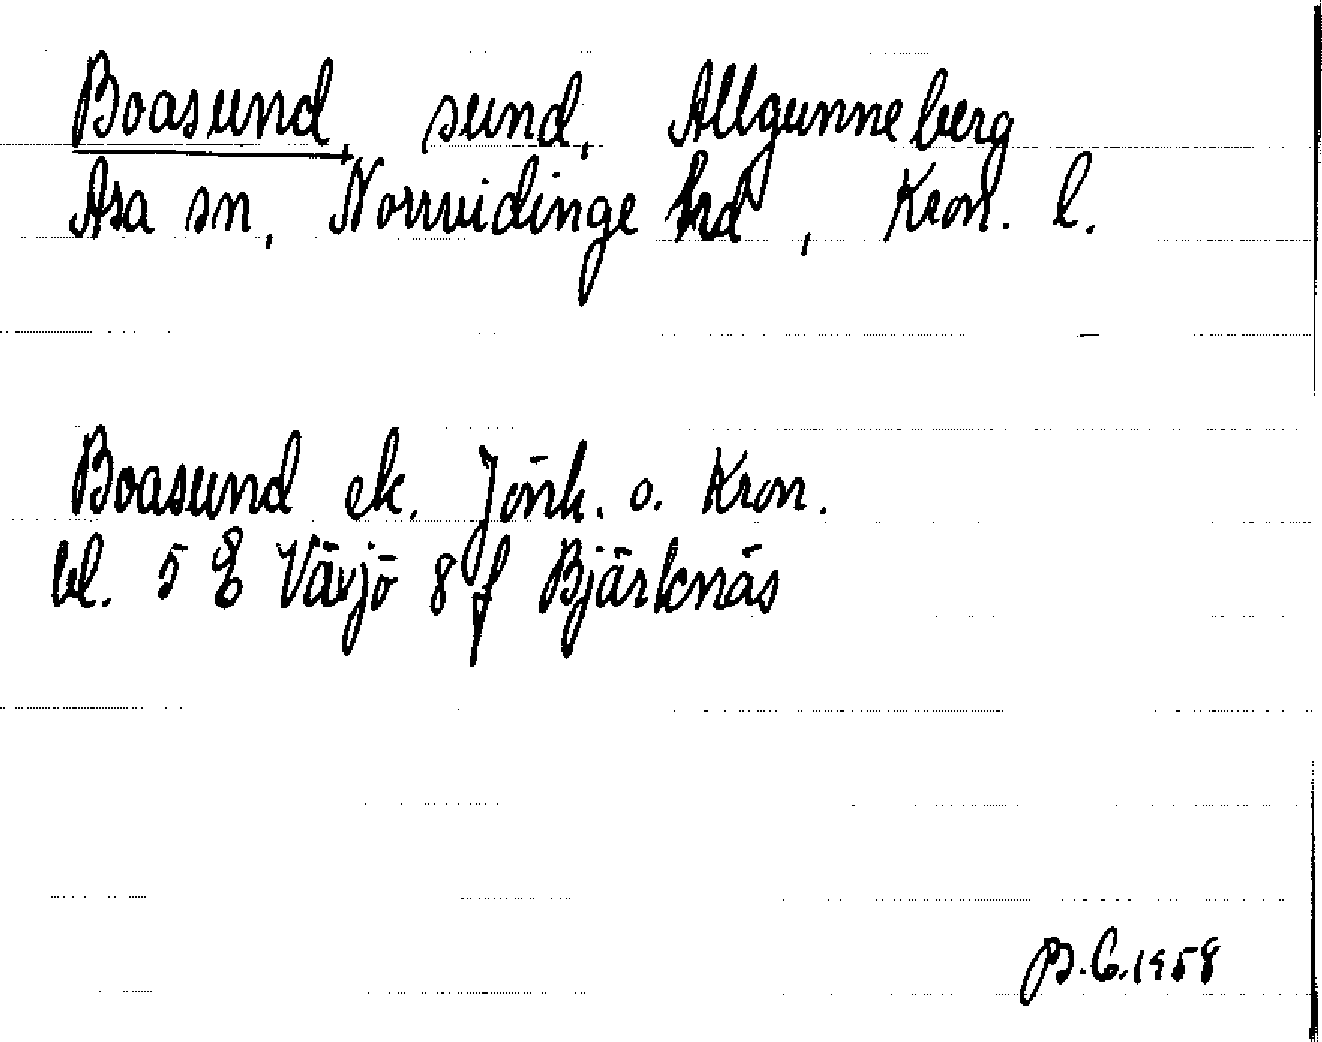 Boasund, sund, Allgunneberg
Asa sn, Norrvidinge hd, Kron. l.
Boasund ek. Jönk. o. Kron.
bl. 5 E Växjö 8 f Bjärknäs
B.C. 1958